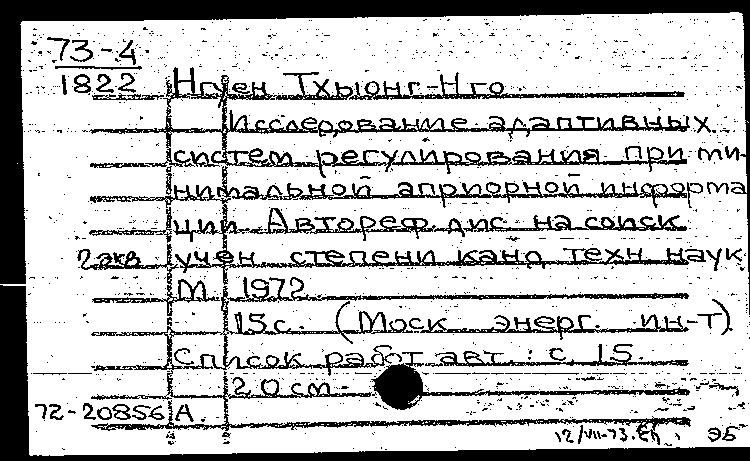 73-4
1822
Нгуен Тхыонг-Нго
Исследование адаптивных
систем регулирования при ми-
нимальной априорной информа
ции Автореф дис на соиск
2 экв учен степени канд техн наук
М 1972
15 с. (Моск энерг. ин-т)
Список работ авт.: с. 15.
20 см
72-20856 А.
12/VII-73. 95